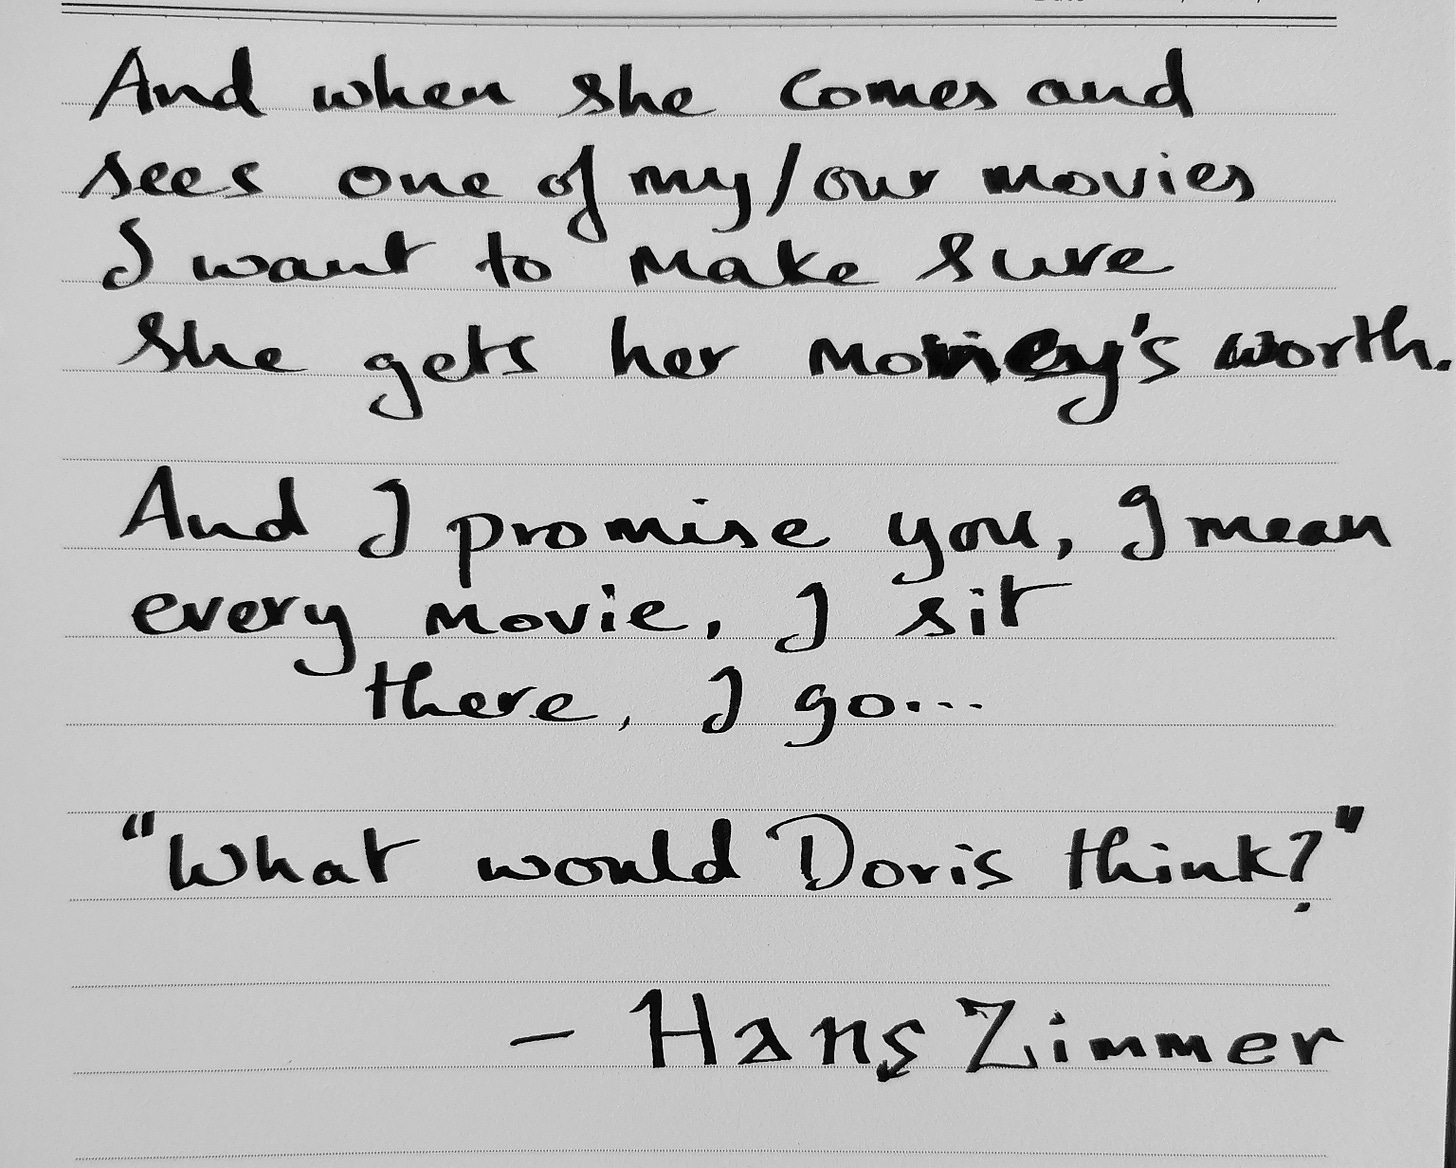 And when she comes and
sees one of my/our movies
I want to make sure
she gets her money's worth.
And I promise you, I mean
every movie, I sit
there, I go...
"What would Doris think?"
- Hans Zimmer